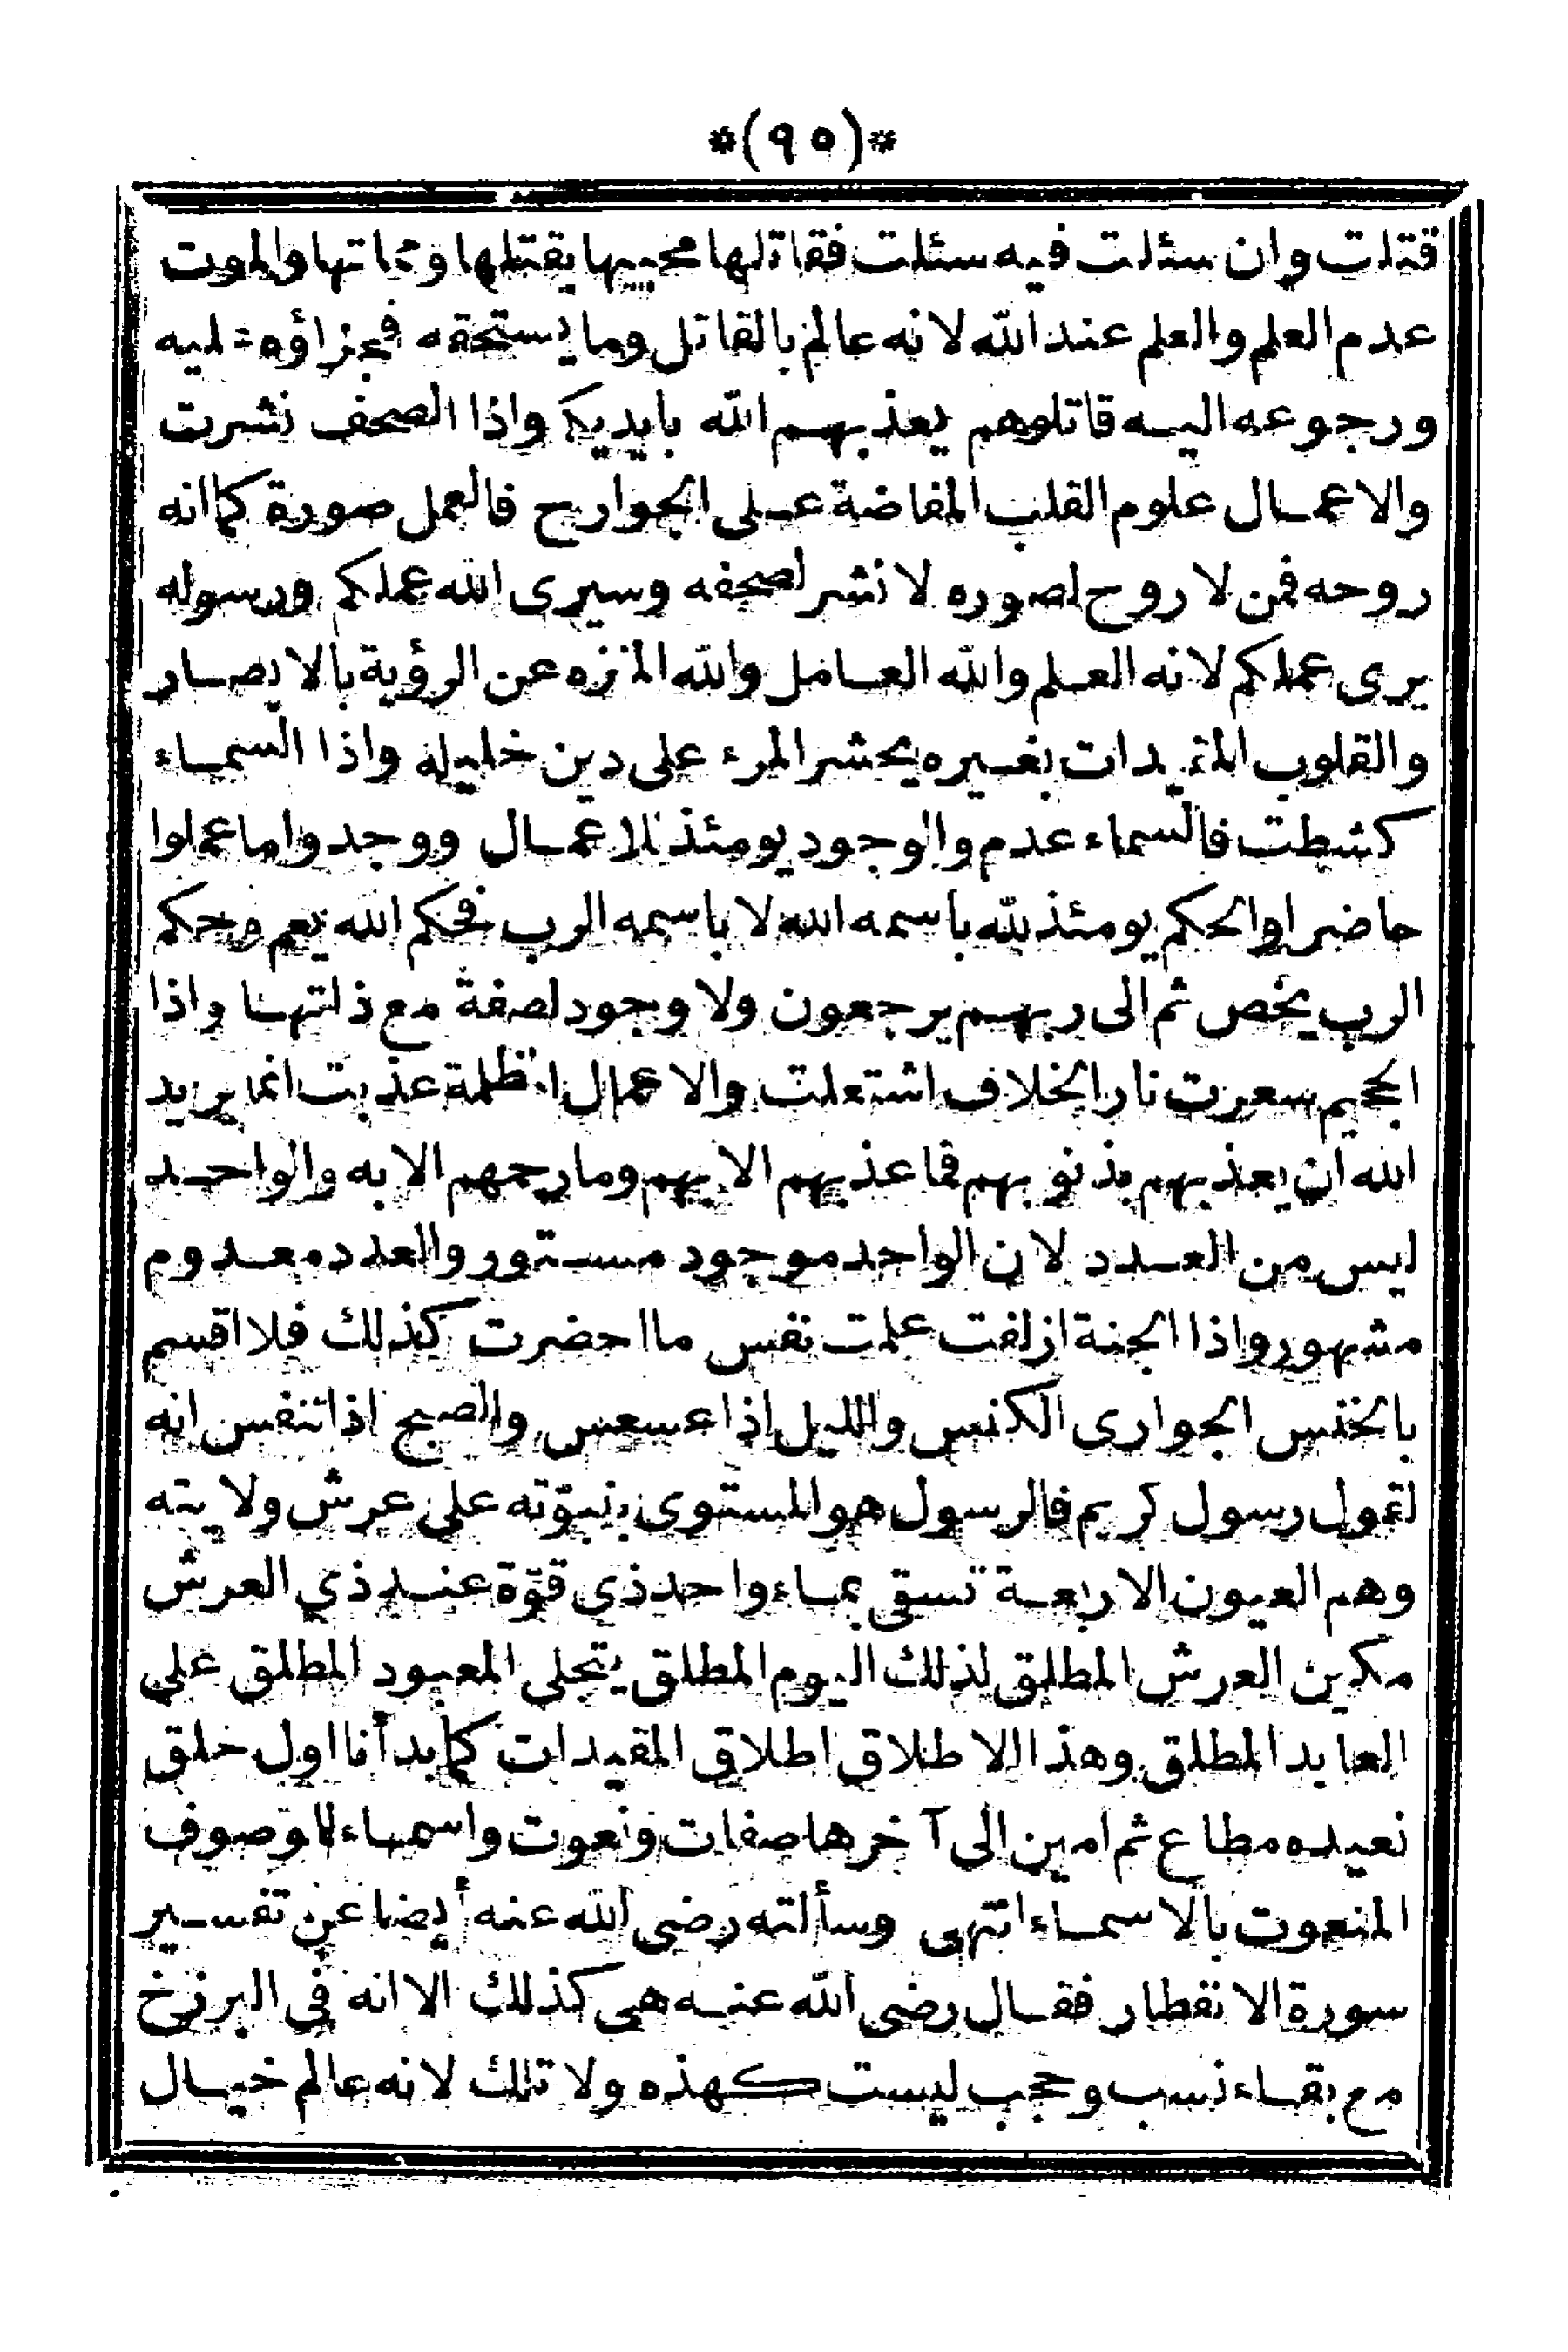 *(٩٥)*
قتلت وان سئلت فيه سئلت فقاتلها محييها بقتلها ومماتها والموت
عدم العلم والعلم عند الله لانه عالم بالقاتل وما يستحقه فجزاؤه عليه
ورجوعه اليه قاتلوهم يعذبهم الله بايديكم واذا الصحف نشرت
والاعمال علوم القلب المفاضة على الجوارح فالعمل صورة كما انه
روحه فمن لا روح لصوره لا نشر لصحفه وسيرى الله عملكم ورسوله
يرى عملكم لانه العلم والله العامل والله المنزه عن الرؤية بالابصار
والقلوب المقيدات بغيره يحشر المرء على دين خليله واذا السماء
كشطت فالسماء عدم والوجود يومئذ للاعمال ووجدوا ما عملوا
حاضرا والحكم يومئذ لله باسمه الله لا باسمه الرب فحكم الله يعم وحكم
الرب يخص ثم الى ربهم يرجعون ولا وجود لصفة مع ذاتها واذا
الجحيم سعرت نار الخلاف اشتعلت والاعمال المظلمة عذبت انما يريد
الله ان يعذبهم بذنوبهم فما عذبهم الا بهم وما رحمهم الا به والواحد
ليس من العدد لان الواحد موجود مستور والعدد معدوم
مشهور واذا الجنة ازلفت علمت نفس ما احضرت كذلك فلا اقسم
بالخنس الجوارى الكنس والليل اذا عسعس والصبح اذا تنفس انه
لقول رسول كريم فالرسول هو المستوى بنبوّته على عرش ولايته
وهم العيون الاربعة تسقى بماء واحد ذي قوّة عند ذي العرش
مكين العرش المطلق لذلك اليوم المطلق يتجلى المعبود المطلق على
العابد المطلق وهذا الاطلاق اطلاق المقيدات كما بدأنا اول خلق
نعيده مطاع ثم امين الى آخرها صفات ونعوت واسماء للموصوف
المنعوت بالاسماء انتهى وسألته رضى الله عنه أيضا عن تفسير
سورة الانفطار فقال رضى الله عنه هى كذلك الا انه في البرزخ
مع بقاء نسب وحجب ليست كهذه ولا تلك لانه عالم خيال